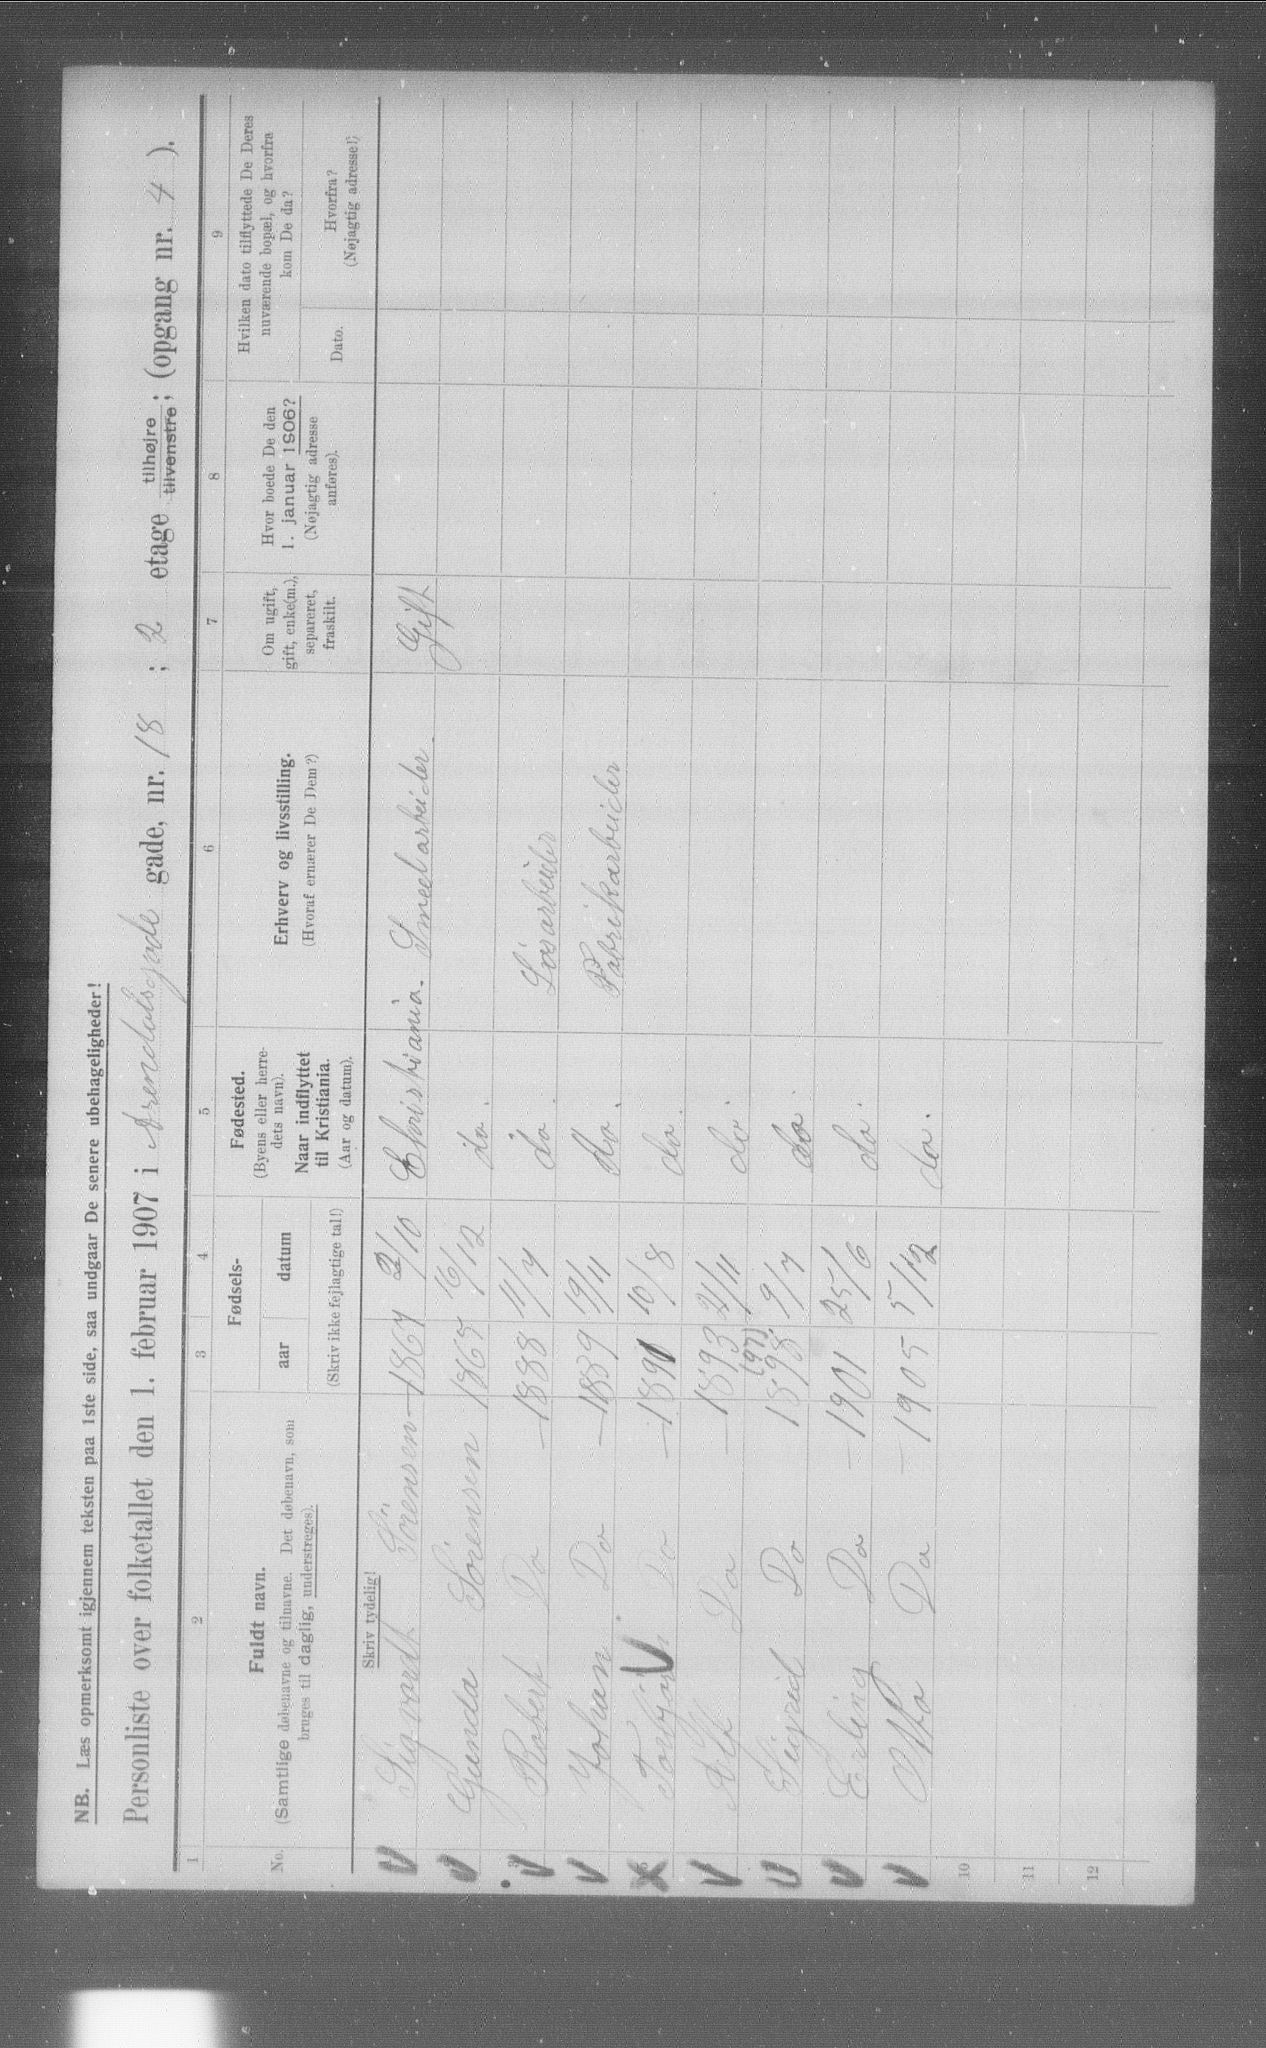 NB. Læs opmerksomt igjennem teksten paa 1ste side, saa undgaar De senere ubehageligheder!
Personliste over folketallet den 1. februar 1907 i Arendalsgade gade, nr. 18 ; 2 etage tilhøjre tilvenstre; (opgang nr. 4 ).
1 2 3 4 5 6 7 8 9
No. Fuldt navn. (Samtlige døbenavne og tilnavne. Det døbenavn, som bruges til daglig, understreges).
Fødsels- aar datum (Skriv ikke fejlagtige tal!)
Fødested. (Byens eller herredets navn). Naar indflyttet til Kristiania. (Aar og datum).
Erhverv og livsstilling. (Hvoraf ernærer De Dem?)
Om ugift, gift, enke(m.), separeret, fraskilt.
Hvor boede De den 1. januar 1906? (Nøjagtig adresse anføres).
Hvilken dato tilflyttede De Deres nuværende bopæl, og hvorfra kom De da?
Dato. Hvorfra? (Nøjagtig adresse!)
Skriv tydelig!
Sigvardt Sörensen 1867 2/10 Christiania. Smedarbeider. Gift
Gunda Sörensen 1865 16/12 do.
Robert Do 1888 11/7 do. Løsarbeider
Johan Do 1889 19/11 do. Fabrikarbeider
Torbjørn Do 1891 10/8 do.
Alf Do 1893 21/11 do.
Sigrid Do 1898 (97) 9/7 do.
Erling Do 1901 25/6 do.
Otto Do 1905 5/12 do.
10
11
12